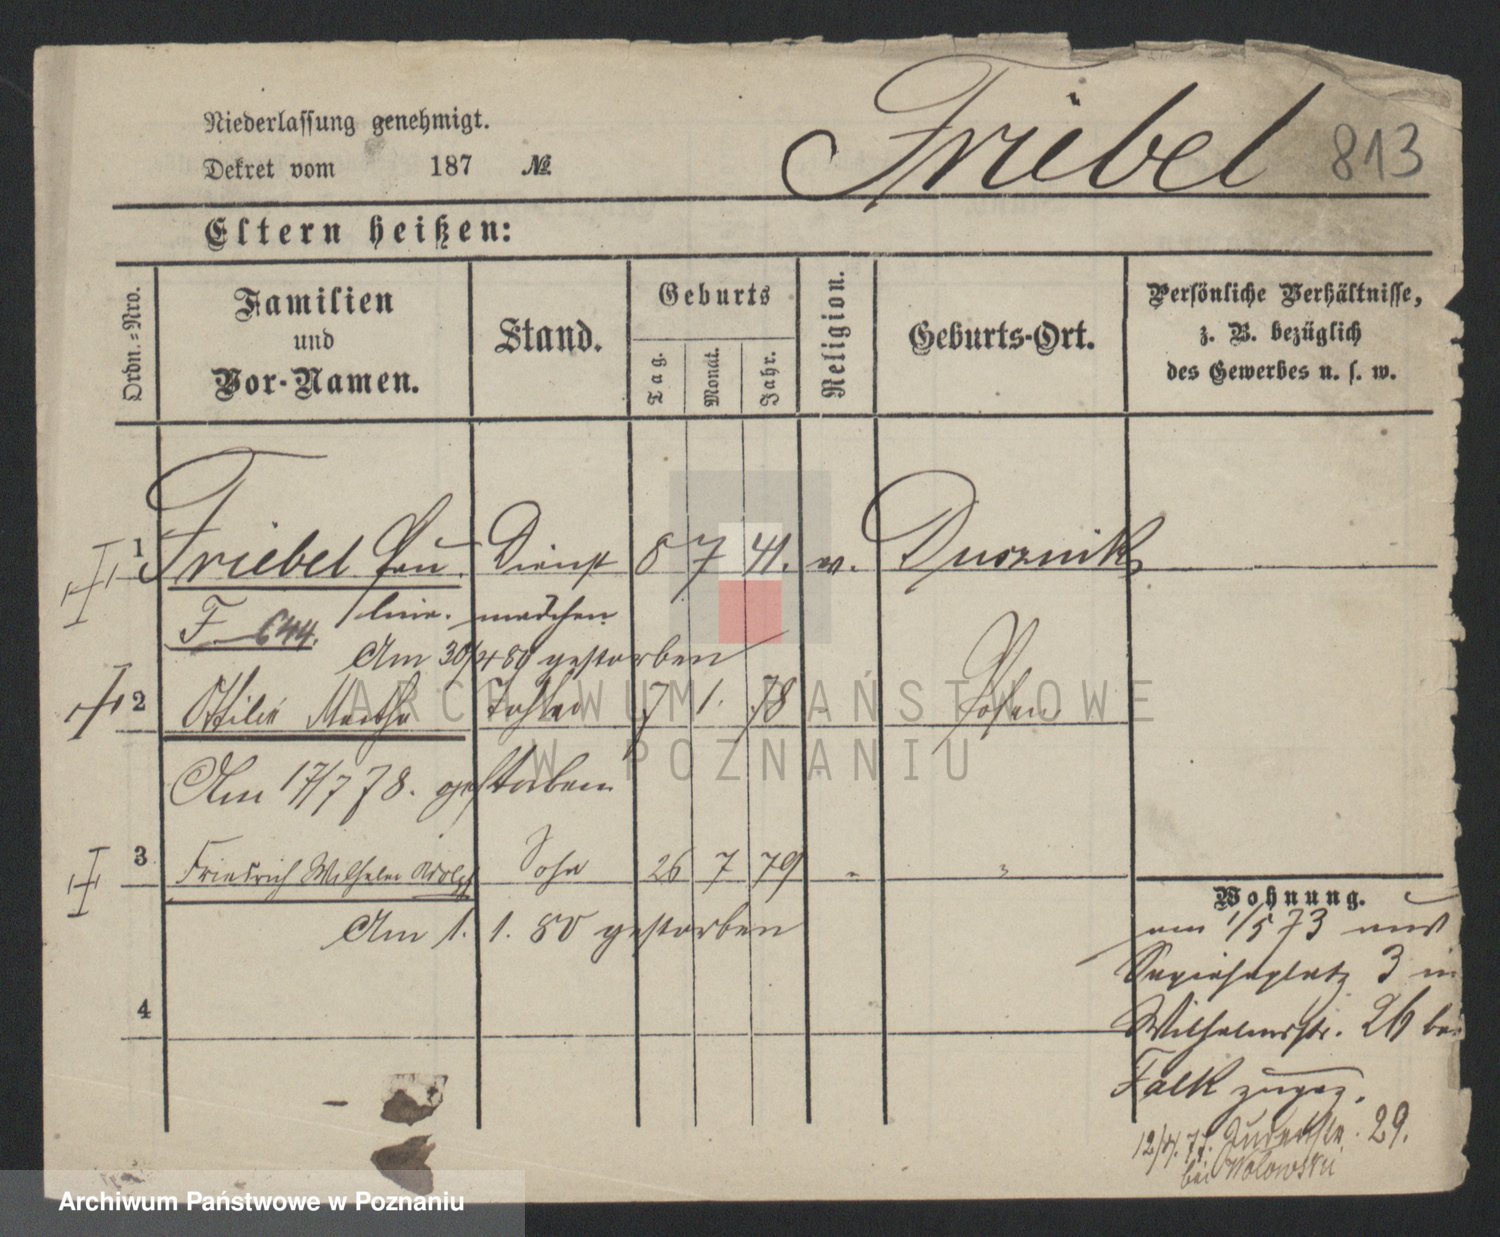 Niederlassung genehmigt.
Dekret vom 187 №
Friebel 813
Eltern heißen:
Ordn.=Nro.
Familien
und
Vor-Namen.
Stand.
Geburts
Tag.
Monat.
Jahr.
Religion.
Geburts-Ort.
Persönliche Verhältnisse,
z. B. bezüglich
des Gewerbes u. s. w.
1 Friebel Pau Dienst 8 7 41. Dusznik
F 644. line. mädchen
Am 30/4 80 gestorben
2 Ottilie Martha Tochter 7 1. 78 Posen
Am 17/7 78. gestorben
3 Friedrich Wilhelm Adolph Sohn 26 7 79 " "
Am 1. 1. 80 gestorben
4
Wohnung.
am 1/5 73 aus
Sapiehaplatz 3 in
Wilhelmstr. 26 bei
Falk zugez.
12/4. 77. 29.
bei Wolowski
ARCHIWUM PAŃSTWOWE
W POZNANIU
Archiwum Państwowe w Poznaniu